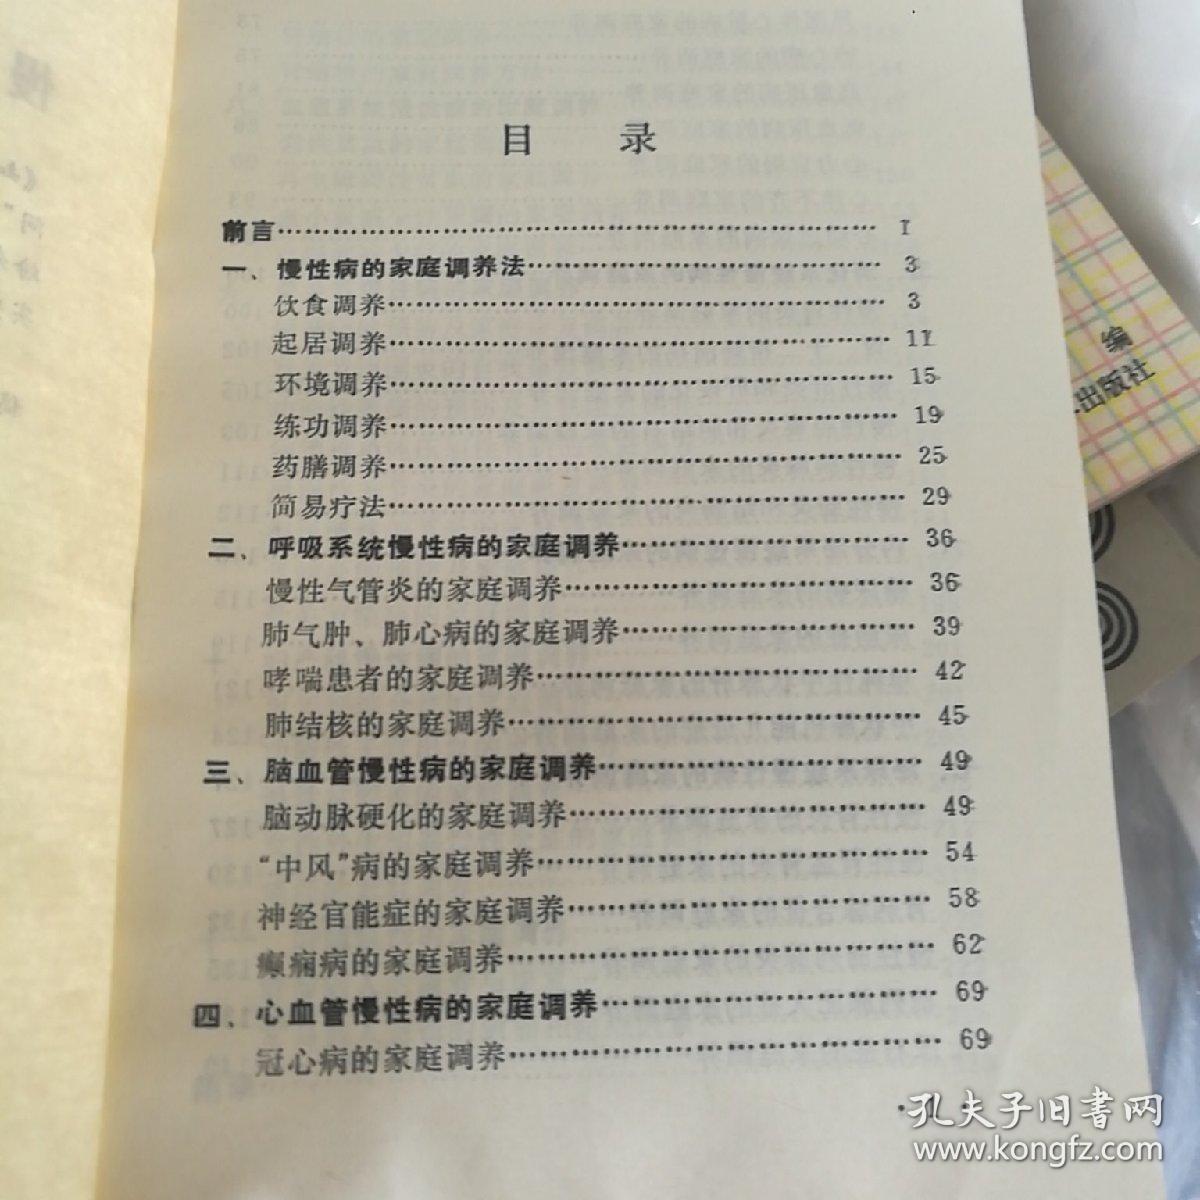 目 录
前言…………………………………………………… 1
一、慢性病的家庭调养法……………………………… 3
饮食调养…………………………………………… 3
起居调养…………………………………………… 11
环境调养…………………………………………… 15
练功调养…………………………………………… 19
药膳调养…………………………………………… 25
简易疗法…………………………………………… 29
二、呼吸系统慢性病的家庭调养……………………… 36
慢性气管炎的家庭调养…………………………… 36
肺气肿、肺心病的家庭调养……………………… 39
哮喘患者的家庭调养……………………………… 42
肺结核的家庭调养………………………………… 45
三、脑血管慢性病的家庭调养………………………… 49
脑动脉硬化的家庭调养…………………………… 49
“中风”病的家庭调养……………………………… 54
神经官能症的家庭调养…………………………… 58
癫痫病的家庭调养………………………………… 62
四、心血管慢性病的家庭调养………………………… 69
冠心病的家庭调养………………………………… 69
· 1 ·
编
出版社
孔夫子旧书网
www.kongfz.com